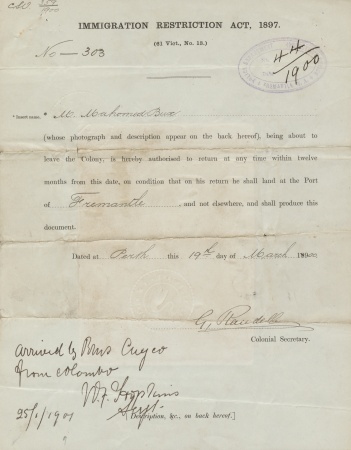 IMMIGRATION RESTRICTION ACT, 1897.
(61 Vict., No. 13.)
No — 303
44
1900
* Insert name.
* M. Mahomed Bux
(whose photograph and description appear on the back hereof), being about to
leave the Colony, is hereby authorised to return at any time within twelve
months from this date, on condition that on his return he shall land at the Port
of Fremantle and not elsewhere, and shall produce this
document.
Dated at Perth this 19th day of March 1900
G. Randell
Colonial Secretary.
arrived by RMS Cuzco
from Colombo
W. F. Hopkins
Sergt.
25/1/1901
[Description, &c., on back hereof.]